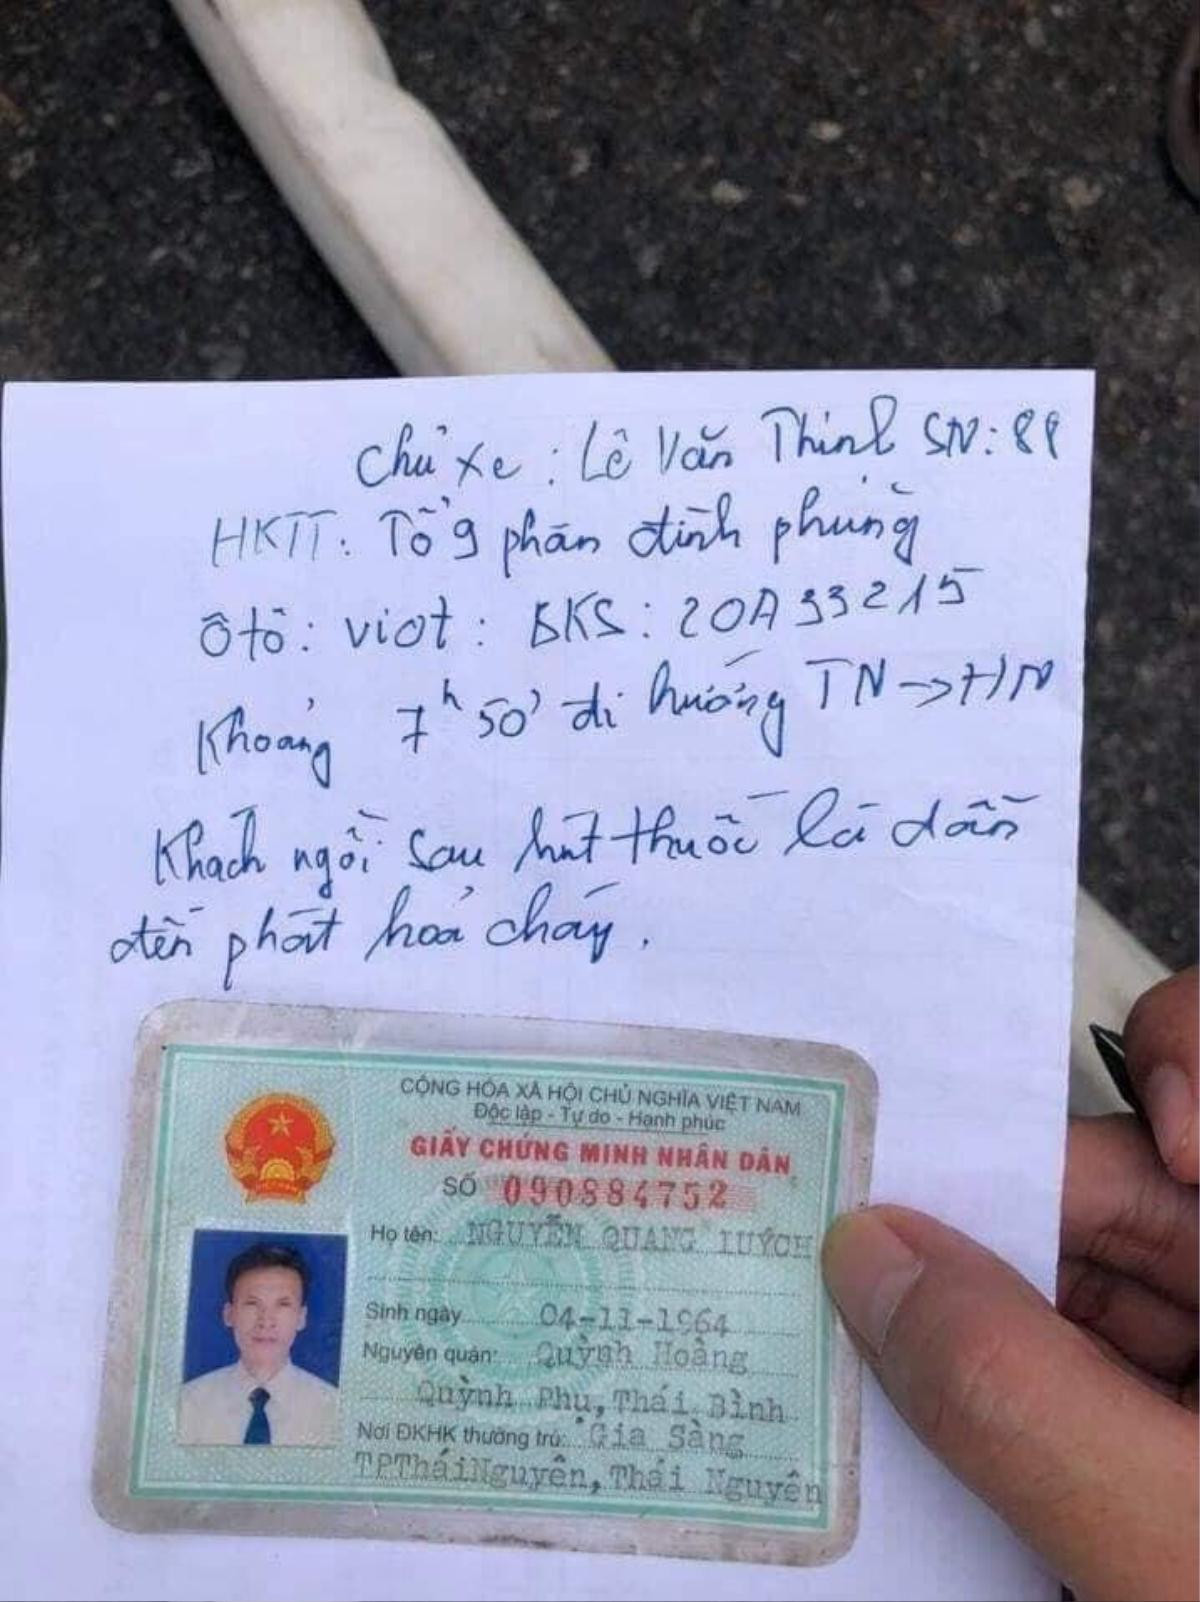 Chủ xe : Lê Văn Thinh SN: 88
HKTT: Tổ 9 phan đình phùng
Ô tô: viot: BKS: 20A 33215
Khoảng 7h50' đi hướng TN → HN
Khách ngồi sau hút thuốc lá dẫn
đến phát hoả cháy.
CỘNG HÒA XÃ HỘI CHỦ NGHĨA VIỆT NAM
Độc lập - Tự do - Hạnh phúc
GIẤY CHỨNG MINH NHÂN DÂN
SỐ 090884752
Họ tên: NGUYỄN QUANG
Sinh ngày 04-11-1964
Nguyên quán: Quỳnh Hoàng
Quỳnh Phụ, Thái Bình
Nơi ĐKHK thường trú: Gia Sàng
TPTháiNguyên, Thái Nguyên